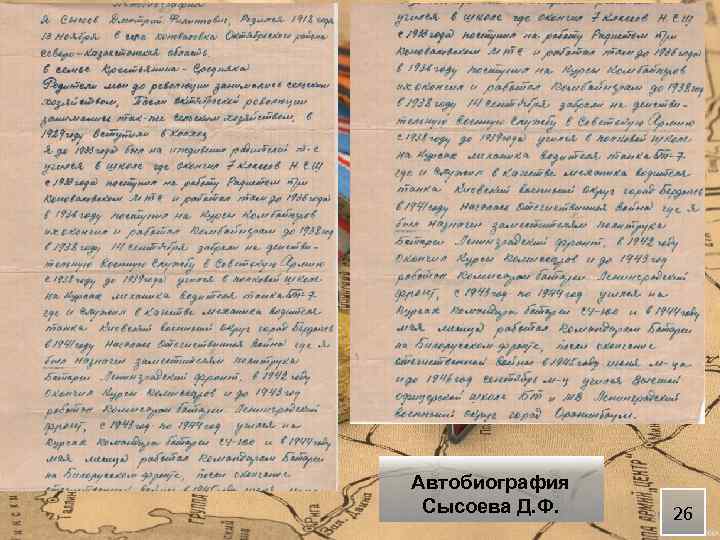 Автобиография
Я Сысоев Дмитрий Филиппович, Родился 1918 года
13 ноября в селе Коноваловка Октябрьского района
Северо-Казахстанская область,
в семье Крестьянина-Средняка
Родители мои до революции занимались сельским
хозяйством, После октябрьской революции
занимались так-же сельским хозяйством, в
1929 году вступили в колхоз
Я до 1933 года был на иждивении родителей т-с
учился в школе где окончил 7 классов Н С Ш
с 1933 года поступил на работу Радистом при
Коноваловском МТС и работал там до 1936 года
в 1936 году поступил на Курсы Комбайнеров
их окончил и работал Комбайнером до 1938 год
в 1938 году 14 сентября забрали на действи-
тельную военную службу в Советскую Армию
с 1938 году до 1939 года учился в полковой школе
на Курсах механика водителя танка БТ-7
где и служил в качестве механика водителя
танка Киевский военный округ город Бердичев
в 1941 году Началась Отечественная война где я
был назначен заместителем политрука
Батареи Ленинградский фронт, в 1942 году
окончил Курсы Комиссаров и до 1943 года
работал Комиссаром батареи. Ленинградский
фронт, с 1943 год по 1944 год учился на
Курсах Командира батареи СУ-100 и в 1944 году
мая месяца работал Командиром Батареи
на Белорусском фронте, после окончание
учился в школе где окончил 7 классов Н С Ш
с 1933 года поступил на работу Радистом при
Коноваловском МТС и работал там до 1936 года
в 1936 году поступил на Курсы Комбайнеров
их окончил и работал Комбайнером до 1938 год
в 1938 году 14 сентября забрали на действи-
тельную военную службу в Советскую Армию
с 1938 году до 1939 года учился в полковой школе
на Курсах механика водителя танка БТ-7
где и служил в качестве механика водителя
танка Киевский военный округ город Бердичев
в 1941 году Началась Отечественная война где я
был назначен заместителем политрука
Батареи Ленинградский фронт, в 1942 году
окончил Курсы Комиссаров и до 1943 года
работал Комиссаром батареи. Ленинградский
фронт, с 1943 год по 1944 год учился на
Курсах Командира батареи СУ-100 и в 1944 году
мая месяца работал Командиром Батареи
на Белорусском фронте, после окончание
отечественной войны в 1945 году июня м-ца
и до 1946 год сентябрь м-ц учился Высшей
офицерской школе БТ и МВ Ленинградский
военный округ город Ораниенбаум.
Автобиография
Сысоева Д.Ф.
26
Рига
Зап. Двина
ГРУППА